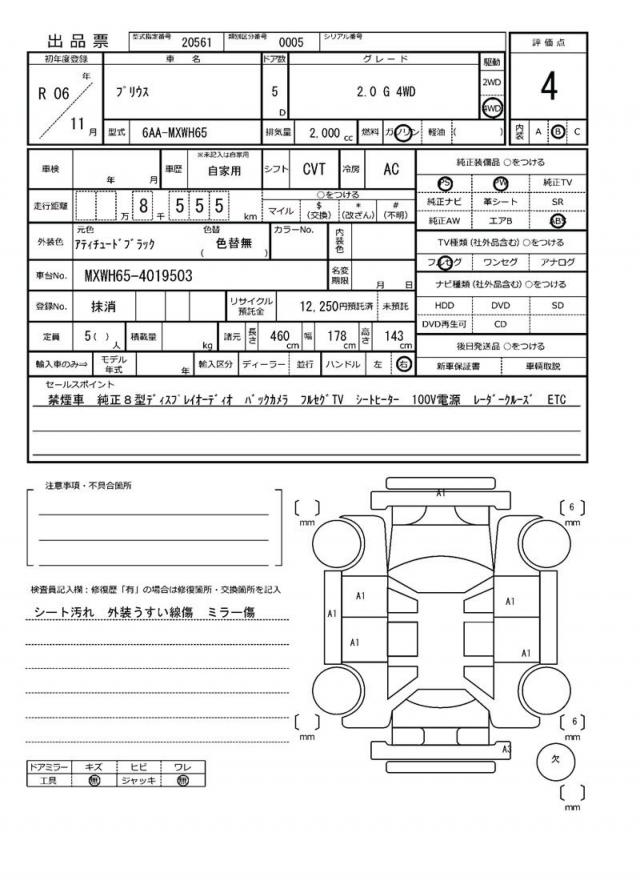 出品票 型式指定番号 20561 類別区分番号 0005 シリアル番号
評価点
初年度登録 車名 ドア数 グレード 駆動
R 06 年 11 月 プリウス 5 D 2.0 G 4WD 2WD 4WD
4
型式 6AA-MXWH65 排気量 2,000 cc 燃料 ガソリン 軽油 ( )
内装 A B C
車検 年 月 車歴 ※未記入は自家用 自家用 シフト CVT 冷房 AC
走行距離 万 8 千 5 5 5 km
○をつける
マイル $ (交換) * (改ざん) # (不明)
外装色 元色 アティチュードブラック 色替 ( 色替無 ) カラーNo. 内装色
車台No. MXWH65-4019503 名変期限 月 日
登録No. 抹消 リサイクル預託金 12,250円預託済 未預託
定員 5 ( ) 人 積載量 kg 諸元 長さ 460 cm 幅 178 cm 高さ 143 cm
輸入車のみ⇒ モデル年式 年 輸入区分 ディーラー 並行 ハンドル 左 右
純正装備品 ○をつける
PS PW 純正TV
純正ナビ 革シート SR
純正AW エアB ABS
TV種類(社外品含む) ○をつける
フルセグ ワンセグ アナログ
ナビ種類(社外品含む) ○をつける
HDD DVD SD
DVD再生可 CD
後日発送品 ○をつける
新車保証書 車輌取説
セールスポイント
禁煙車 純正8型ディスプレイオーディオ バックカメラ フルセグTV シートヒーター 100V電源 レーダークルーズ ETC
注意事項・不具合箇所
検査員記入欄：修復歴「有」の場合は修復箇所・交換箇所を記入
シート汚れ 外装うすい線傷 ミラー傷
ドアミラー キズ ヒビ ワレ
工具 無 ジャッキ 無
A1
[ ] mm
[ 6 ] mm
A1
A1
A1
A1
A1
[ ] mm
[ 6 ] mm
A3
欠
[ ] mm